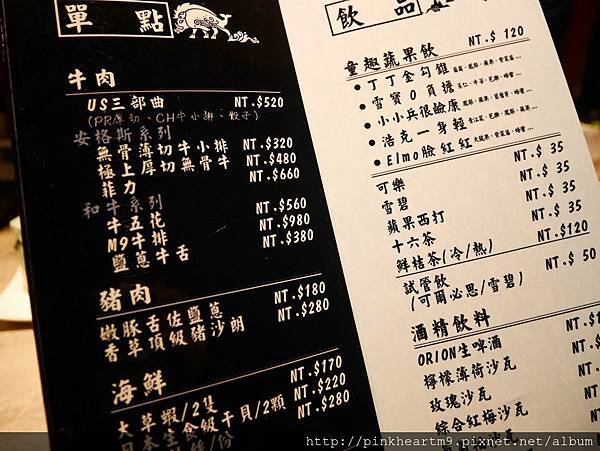 單點
牛肉
US三部曲 NT.$520
(PR厚切、CH牛小排、骰子)
安格斯系列
無骨薄切牛小排 NT.$320
極上厚切無骨牛 NT.$480
菲力 NT.$660
和牛系列
牛五花 NT.$560
M9牛排 NT.$980
鹽蔥牛舌 NT.$380
豬肉
嫩豚舌佐鹽蔥 NT.$180
香草頂級豬沙朗 NT.$280
海鮮
大草蝦/2隻 NT.$170
日本生食級干貝/2顆 NT.$220
/份 NT.$280
飲品
童趣蔬果飲 NT.$ 120
●丁丁金勾錐
●雪寶0負擔
●小小兵很臉康
●浩克一身輕
●Elmo臉紅紅
可樂 NT.$ 35
雪碧 NT.$ 35
蘋果西打 NT.$ 35
十六茶 NT.$ 35
鮮桔茶(冷/熱) NT.$120
試管飲 NT.$ 50
(可爾必思/雪碧)
酒精飲料
ORION生啤酒
檸檬薄荷沙瓦
玫瑰沙瓦
綜合紅梅沙瓦
http://pinkheartm9.pixnet.net/album